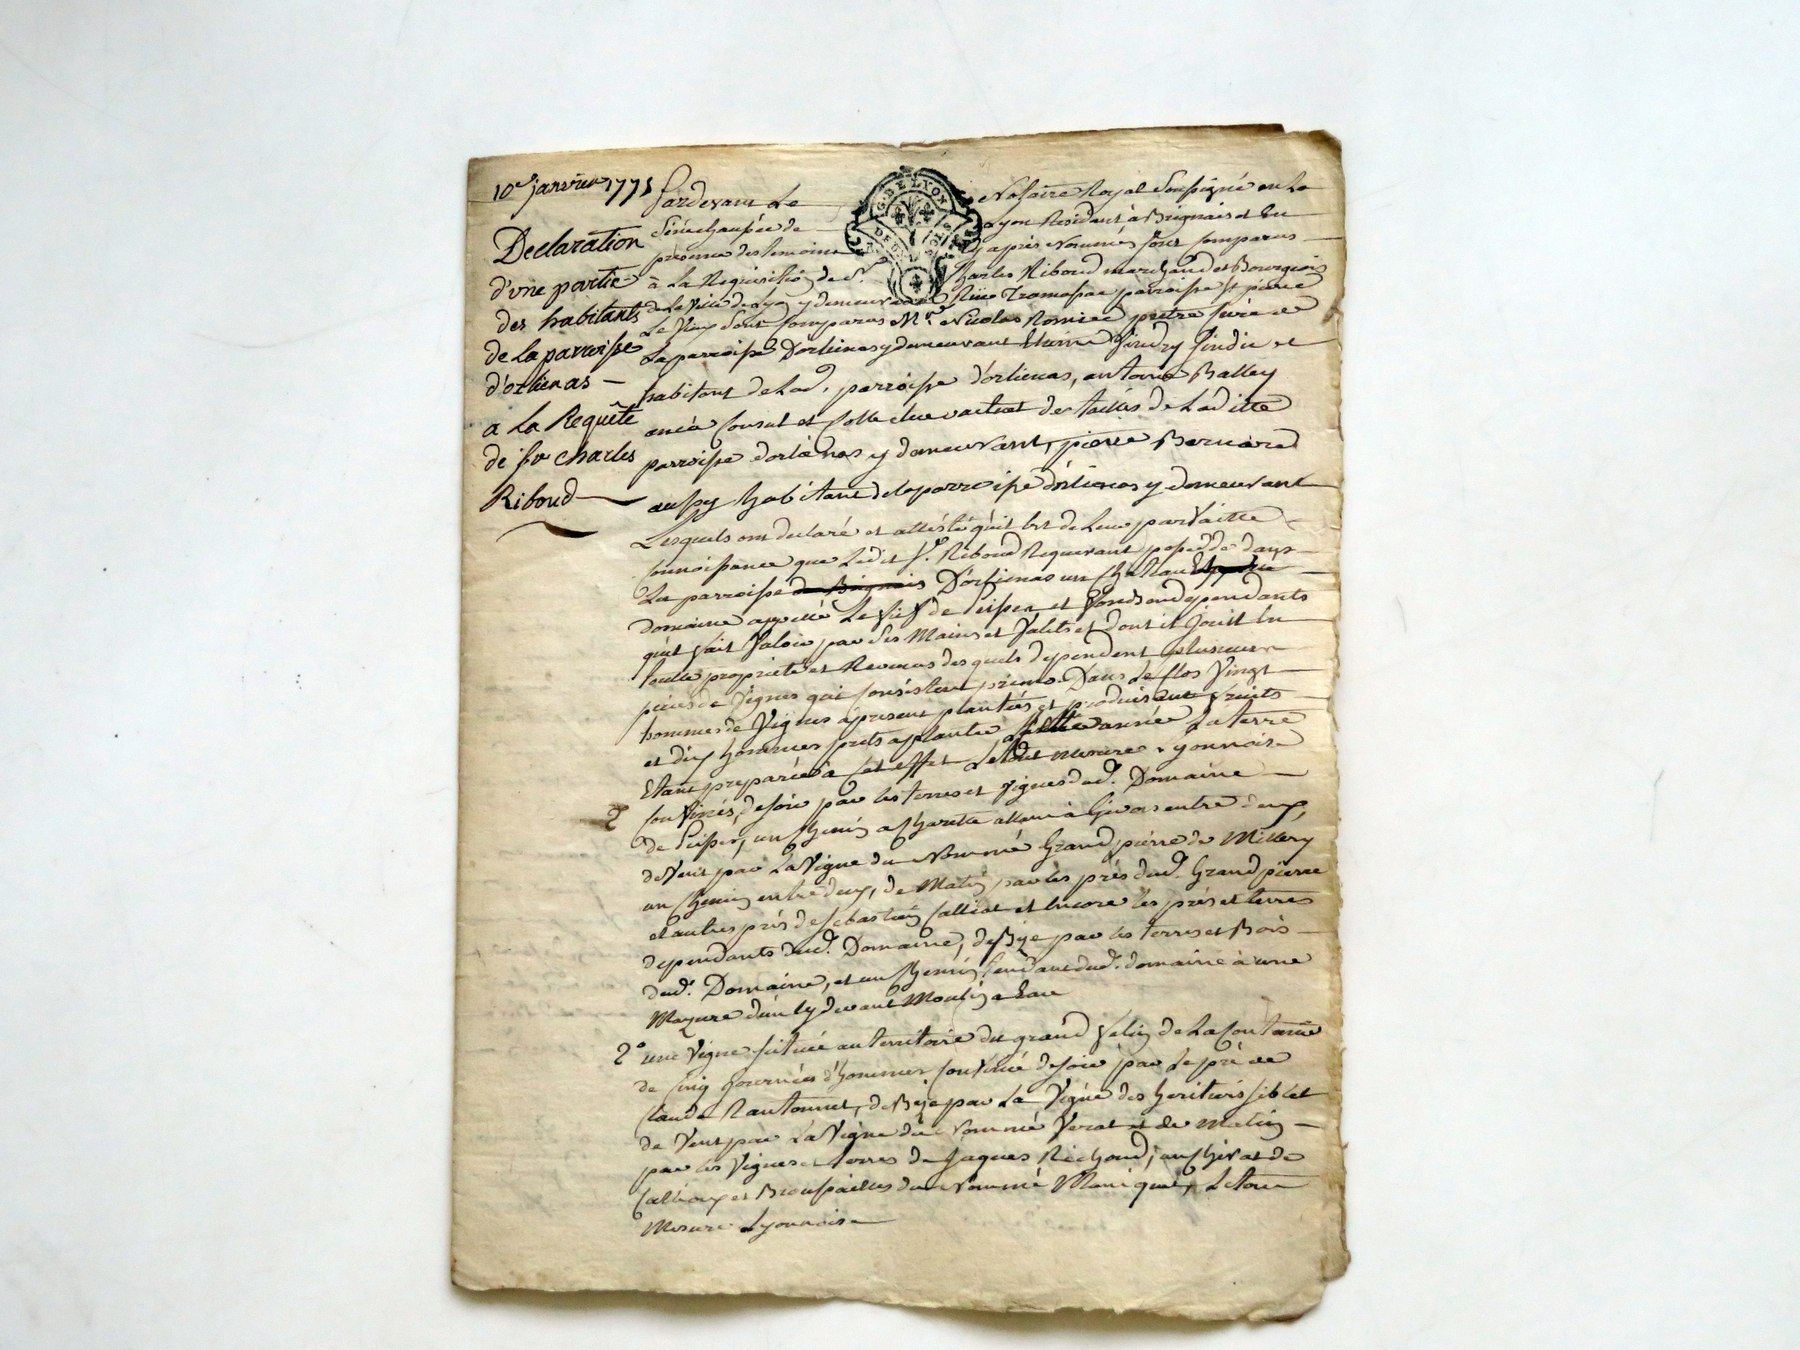 10e janvier 1775
Declaration
d'une partie
des habitants
de la parroisse
d'orlienas —
a la Requête
de sr charles
Riboud
G. DE LYON
DEUX SOLS
Pardevant Le Notaire Royal Soussigné en la
Sénéchaussée de Lyon Résidant à Brignais et En
présence des temoins cy après Nommés sont comparus
à La Requisition de Sr. Charles Riboud marchand et Bourgeois
de la Ville de Lyon y demeurant Rüe parroisse St pierre
Le Vieux Sont comparus Mre. Nicolas prêtre curé de
La parroisse D'orlienas y demeurant Sindic et
habitant de Lad. parroisse d'orlienas, antoine Balley
consul et collecteur des tailles de Laditte
parroisse d'orlienas y demeurant, pierre Bernard
aussy habitant de la parroisse d'orlienas y demeurant
Lesquels ont declaré et attesté qu'il est de Leur parfaitte
connoissance que Ledit Sr. Riboud Requerant possede dans
La parroisse de Brignais D'orlienas un Chateau
domaine appellé Le fief de et fonds en dependants
qu'il fait Valoir par Ses Mains et Valets et dont il Jouit En
toutte proprieté et Revenus desquels dependent plusieurs
pieces de Vignes qui consistent primo. Dans Le clos Vingt
hommes de Vignes apresent plantées et produisant fruits
et dix hommes prets a planter cette année La terre
Etant preparée à cet effet Le tout mesure Lyonnoise
confinés, de soir par les terres et vignes dud. Domaine
de un chemin a Charette allant à Givors entre deux,
de Vent par La Vigne du Nommé Grand pierre de Millery
un chemin entre deux, de Matin par les prés dud. Grand pierre
et autres prés de Sebastien et Encore les prés et terres
dependants dud. Domaine, de Bize par les terres et Bois
dud. Domaine, et un chemin tendant dud. domaine à une
Mazure d'un cy devant Moulin a Eau
2° une Vigne située au territoire du grand de La fontaine
de cinq Journées d'hommes confinée de soir par Le pré de
Claude de Bize par La Vigne des heritiers
de Vent par La Vigne du Nommé et de Matin
par les Vignes et terres de Jaques Richoud, un de
et Broussailles du Nommé Le tout
Mesure Lyonnoise